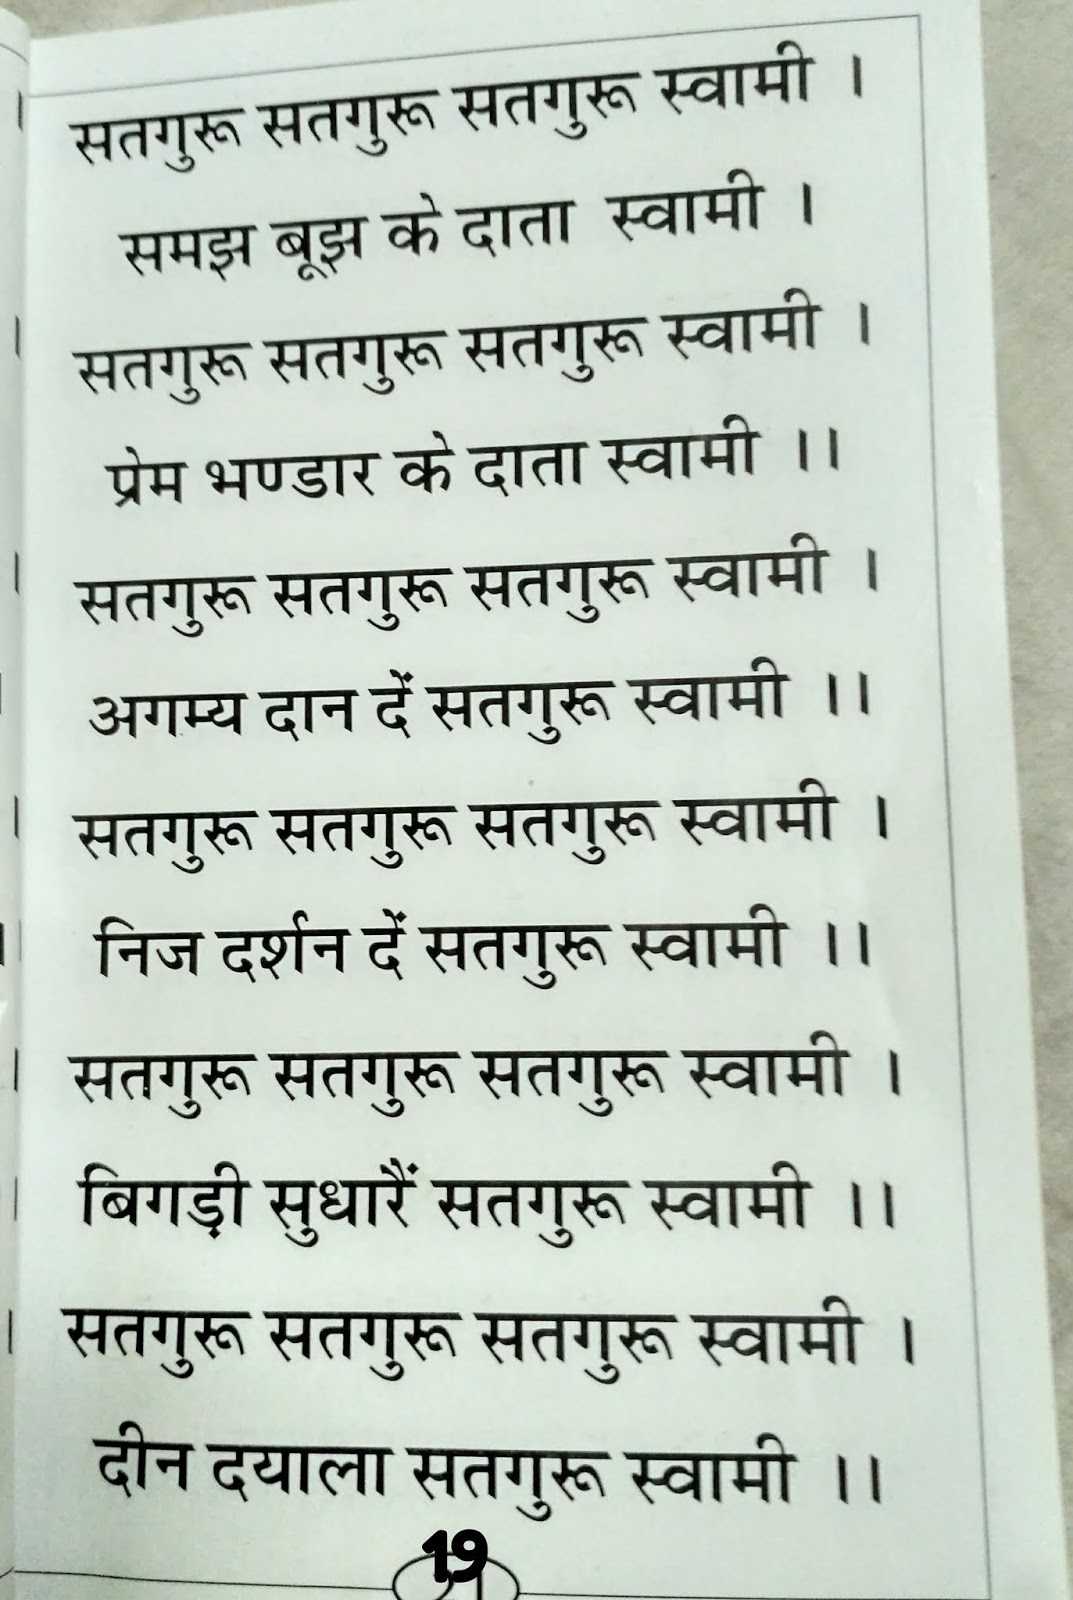 सतगुरू सतगुरू सतगुरू स्वामी ।
समझ बूझ के दाता स्वामी ।
सतगुरू सतगुरू सतगुरू स्वामी ।
प्रेम भण्डार के दाता स्वामी ।।
सतगुरू सतगुरू सतगुरू स्वामी ।
अगम्य दान दें सतगुरू स्वामी ।।
सतगुरू सतगुरू सतगुरू स्वामी ।
निज दर्शन दें सतगुरू स्वामी ।।
सतगुरू सतगुरू सतगुरू स्वामी ।
बिगड़ी सुधारैं सतगुरू स्वामी ।।
सतगुरू सतगुरू सतगुरू स्वामी ।
दीन दयाला सतगुरू स्वामी ।।
19